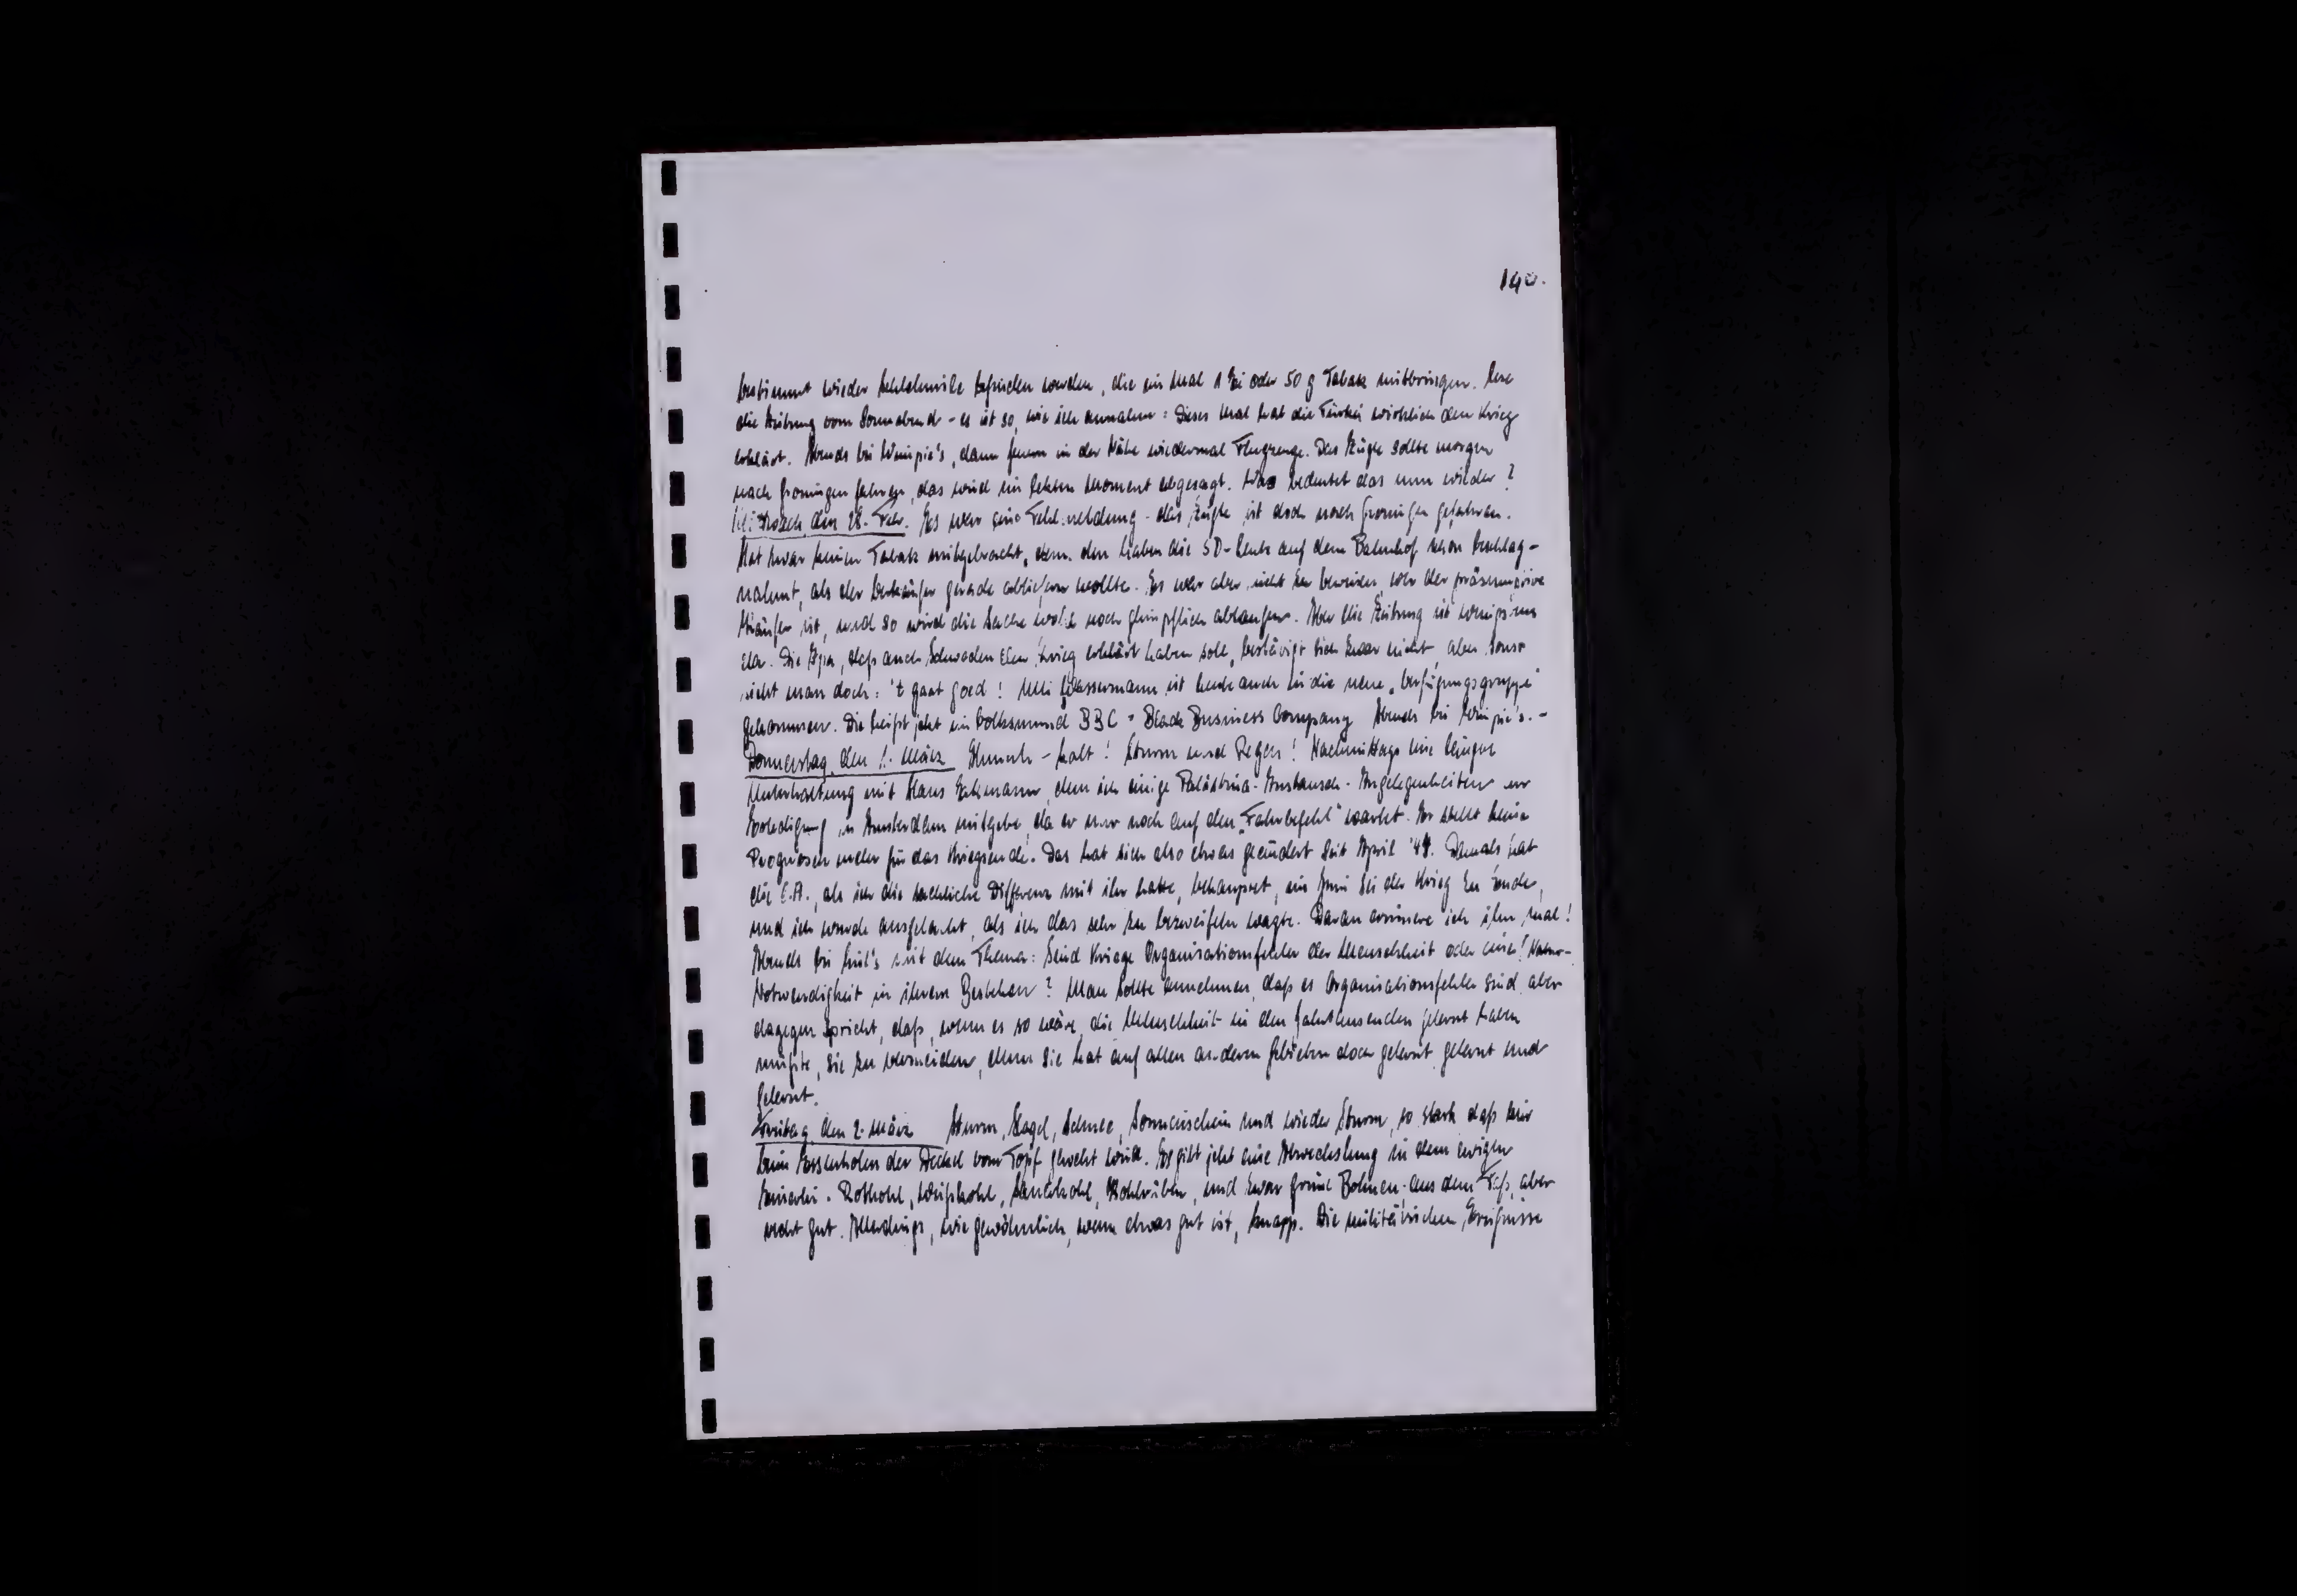 140.
bestimmt wieder befinden werden, die ein Mal 1 Ei oder 50 g Tabak mitbringen. Lese
die Zeitung vom Sonnabend - es ist so, wie ich annahm: Dieses Mal hat die Türkei wirklich den Krieg
erklärt. Abends bei Wimpie's, dann fern in der Nähe wiedermal Flugzeuge. Das Zügle sollte morgen
nach Groningen fahren, das wird im letzten Moment abgesagt. Was bedeutet das nun wieder?
Mittwoch, den 28. Febr. Es war eine Fehlmeldung - das Zügle ist doch nach Groningen gefahren.
Hat zwar keinen Tabak mitgebracht, denn den haben die SD-Leute auf dem Bahnhof schon beschlag-
nahmt, als der Verkäufer gerade abliefern wollte. Es war aber nicht zu beweisen, wer der präsumptive
Käufer ist, und so wird die Sache wohl noch glimpflich ablaufen. Aber die Zeitung ist wenigstens
da. Die Ipa, daß auch Schweden den Krieg erklärt haben soll, bestätigt sich zwar nicht, aber sonst
sieht man doch: 't gaat goed! Ulli Wassermann ist heute auch in die neue "Verfügungsgruppe"
gekommen. Die heißt jetzt im Volksmund BBC = Black Business Company Abends bei Wimpie's. -
Donnerstag, den 1. März - kalt! Sturm und Regen! Nachmittags eine längere
Unterhaltung mit Hans, dem ich einige Palästina-Austausch-Angelegenheiten zur
Erledigung in Amsterdam mitgebe, da er nur noch auf den "Fahrbefehl" wartet. Er stellt keine
Prognosen mehr für das Kriegsende. Das hat sich also etwas geändert seit April '44. Damals hat
die E.A., als ich die sachliche Differenz mit ihr hatte, behauptet, im Juni sei der Krieg zu Ende,
und ich wurde ausgelacht, als ich das sehr zu bezweifeln wagte. Daran erinnere ich ihn mal!
Abends bei mit dem Thema: Sind Kriege Organisationsfehler der Menschheit oder eine Natur-
Notwendigkeit in ihrem Bestehen? Man sollte annehmen, daß es Organisationsfehler sind, aber
dagegen spricht, daß, wenn es so wäre, die Menschheit in den Jahrtausenden gelernt haben
müßte, sie zu vermeiden, denn sie hat auf allen anderen Gebieten doch gelernt, gelernt und
gelernt.
Freitag, den 2. März Sturm, Hagel, Schnee, Sonnenschein und wieder Sturm, so stark daß mir
beim Essenholen der Deckel vom Topf geweht wird. Es gibt jetzt eine Abwechslung in dem ewigen
Einerlei. Rotkohl, Weißkohl, Kohlrüben, und zwar grüne Bohnen, aus dem Faß, aber
recht gut. Allerdings, wie gewöhnlich, wenn etwas gut ist, knapp. Die militärischen Ereignisse